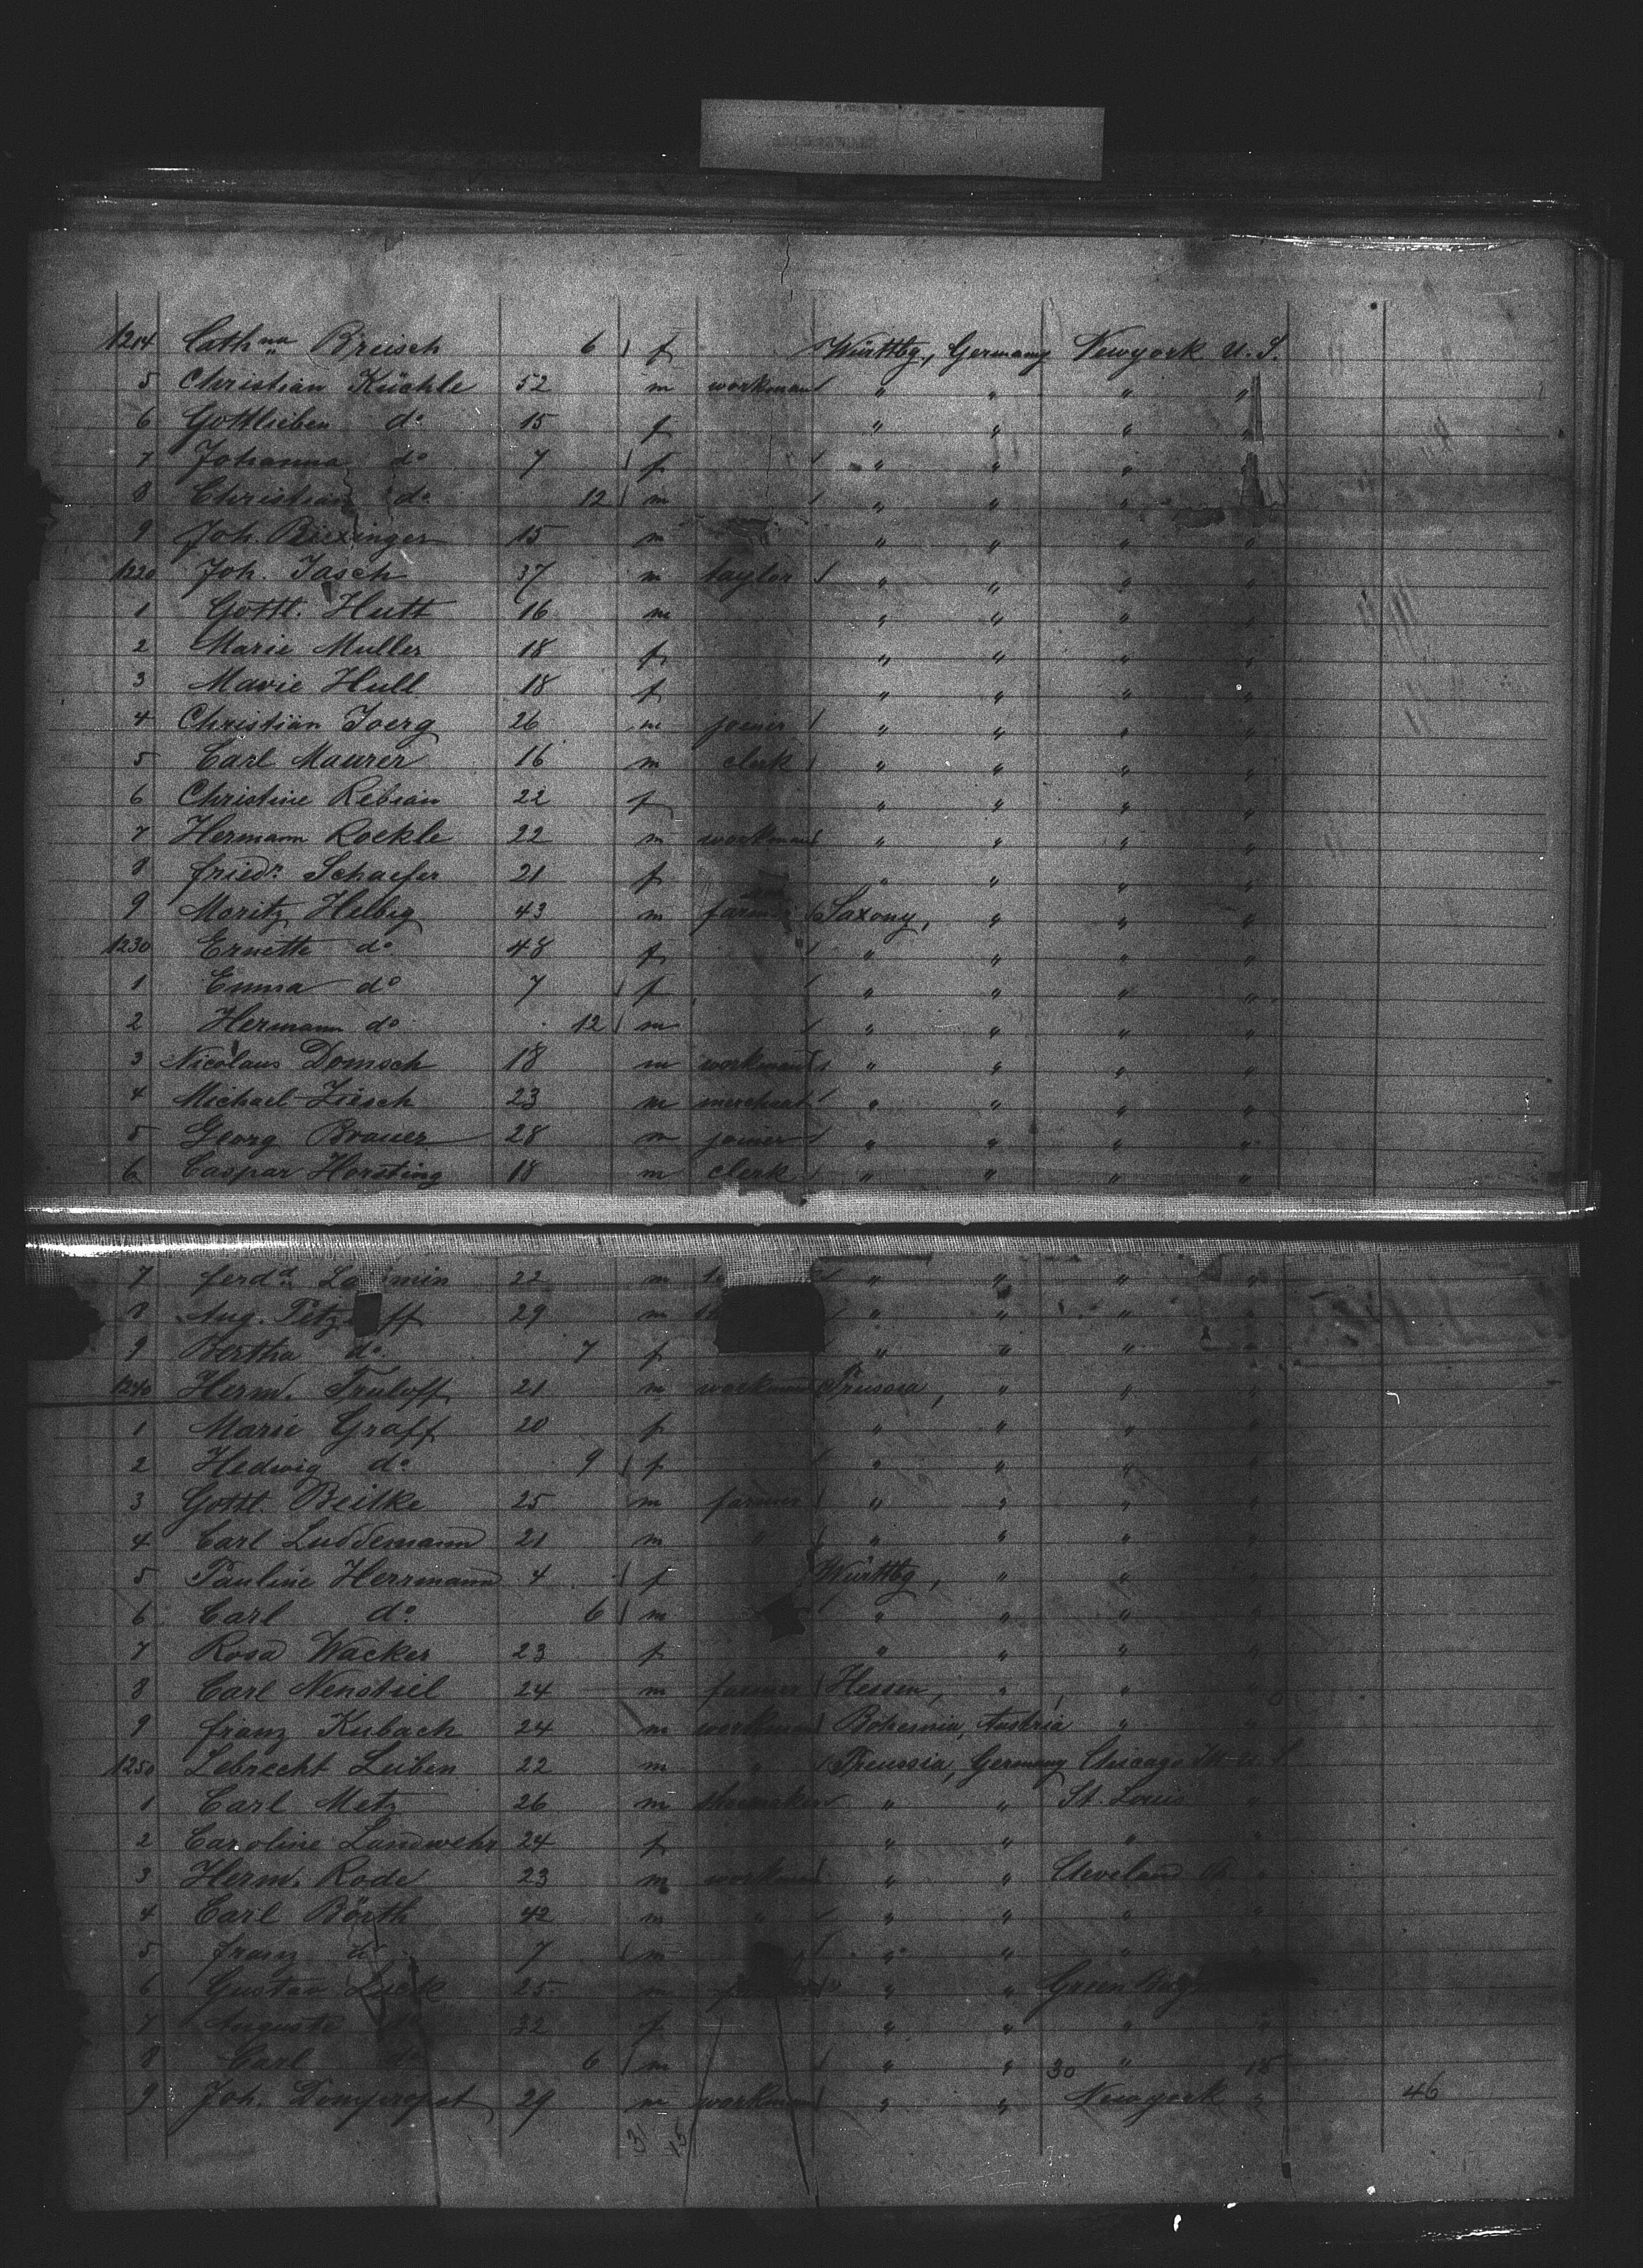 1214 Cathna Breisch 6 f Württbg, Germany Newyork U. S.
5 Christian Küchle 52 m workman " " " "
6 Gottlieben do 15 f " " " "
7 Johanna do 7 f " " " "
8 Christian do 12 m " " " "
9 Joh. Biexinger 15 m " " " "
1220 Joh. Jasch 37 m taylor " " " "
1 Gottl. Hutt 16 m " " " "
2 Marie Muller 18 f " " " "
3 Marie Hull 18 f " " " "
4 Christian Joerg 26 m joiner " " " "
5 Carl Maurer 16 m clerk " " " "
6 Christine Rebian 22 f " " " "
7 Hermann Rockle 22 m workman " " " "
8 Friedr. Schaefer 21 f " " " "
9 Moritz Helbig 43 m farmer Saxony, " " "
1230 Ernette do 48 f " " " "
1 Emma do 7 f " " " "
2 Hermann do 12 m " " " "
3 Nicolaus Domsch 18 m workman " " " "
4 Michael Ziesch 23 m merchant " " " "
5 Georg Brauer 28 m joiner " " " "
6 Caspar Horsting 18 m clerk " " " "
7 Ferdd 22 m " " " "
8 Aug. 29 m " " " "
9 Bertha do 7 f " " " "
1240 Herm. Truloff 21 m workman Prussia, " " "
1 Marie Graff 20 f " " " "
2 Hedwig do 9 f " " " "
3 Gottl. Beilke 25 m farmer " " " "
4 Carl Luddemann 21 m " " " " "
5 Pauline Herrmann 4 f Württbg, " " "
6 Carl do 6 m " " " "
7 Rosa Wacker 23 f " " " "
8 Carl Nenstiel 24 m farmer Hessen, " " "
9 Franz Kubach 24 m workman Bohemia, Austria " "
1250 Lebrecht Leiben 22 m " Preussia, Germany Chicago Ill U. S.
1 Carl Metz 26 m shoemaker " " St. Louis "
2 Caroline Landwehr 24 f " " " "
3 Herm. Rode 23 m workman " " Cleveland O. "
4 Carl Börth 42 m " " " " "
5 Franz do 7 m " " " "
6 Gustav Lueck 25 m " " Green Bay
7 Auguste do 32 f " " " "
8 Carl do 6 m " " 30 " 15
9 Joh. Dompropst 29 m workman " " Newyork " 46
31 15